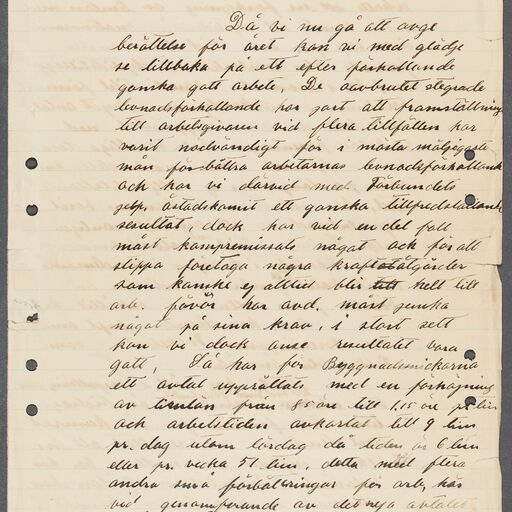 Då vi nu gå att avge
berättelse för året kan vi med glädje
se tillbaka på ett efter förhallande
ganska gott arbete. De oavbrutet stegrade
levnadsförhallande har gort att framställning
till arbetsgivaren vid flera tillfällen har
varit nodvändigt för i mösta möjligaste
mån förbättra arbetarnas levnadsförhalland
och har vi därvid med Förbundets
jelp, åstadkomit ett ganska tillfredställande
resultat, dock har vid en del fall
måst kompremissats något och för att
slippa företaga några kraftåtgärder
som kanske ej alltid blir till helt till
arb. favör har avd. måst jemka
något på sina krav, i stort sett
kan vi dock anse resultatet vara
gott, Så har för Byggnadssnickarna
ett avtal upprättats med en förhöjning
av timlön från 85 öre till 1,15 öre pr. tim
och arbetstiden avkortat till 9 tim
pr. dag utom lördag då tiden är 6 tim
eller pr. vecka 51 tim, detta med flera
andra små förbättringar för arb, har
vid genomförande av det nya avtalet